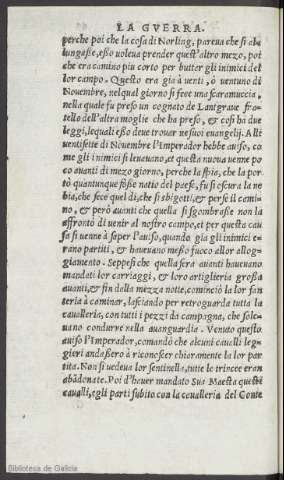 LA GVERRA.
perche poi che la cosa di Norling, pareua che si al-
lungasse, esso uoleua prender quest'altro mezo, poi
che era camino piu corto per butter gli inimici del
lor campo. Questo era gia à uenti, ò uentuno di
Nouembre, nelqual giorno si fece una scaramuccia,
nella quale fu preso un cognato de Lantgraue fra-
tello dell'altra moglie che ha preso, & cosi ha due
leggi, lequali esso deue trouar ne suoi euangelij. Alli
uentisette di Nouembre l'Imperador hebbe auiso, co
me gli inimici si leuauano, et questa nuoua uenne po
co auanti di mezo giorno, perche la spia, che la por
tò quantunque fosse natio del paese, fu si oscura la ne
bia, che fece quel di, che si sbigotti, & perse il cami-
no, & però auanti che quella si sgombrasse non la
affrontò di uenir al nostro campo, et per questa cau
sa si uenne à saper l'auiso, quando gia gli inimici e-
rano partiti, & haueuano messo fuoco allor allog-
giamento. Seppesi che quella sera auanti haueuano
mandati lor carriaggi, & loro artiglieria grossa
auanti, & fin dalla mezza notte, cominciò la lor fan
teria à caminar, lasciando per retroguarda tutta la
caualleria, con tutti i pezzi da campagna, che sole-
uano condurre nella auanguardia. Venuto questo
auiso l'Imperador, comandò che alcuni caualli leg-
gieri andassero à riconoscer chiaramente la lor par
tita. Non si uedeua lor sentinella, tutte le trincee eran
abãdonate. Poi d'hauer mandato Sua Maesta questi
caualli, egli parti subito con la caualleria del Conte
Biblioteca de Galicia